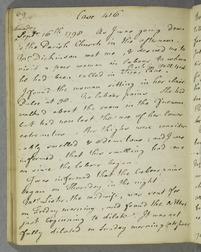 Case 416
Sunday
Sept. 16th 1798. As I was going down
to the Parish Church in the afternoon,
Mr Dickinson met me, & desired me to
visit a poor woman in labour, to whom
he had been called in
I found the woman sitting in her chair
Pulse at 90. No labour pains. She had
walked about the room in the forenoon
but had now lost the use of her lower
extremities. Her thighs were consider-
ably swelled & odematous, and I was
informed that the swelling had
since the labour began.
I was informed that the labour pains
began on Thursday in the night.
the midwife, was sent for
on Friday morning, and found the os uteri
just beginning to dilate. It was not
fully dilated on Sunday morning